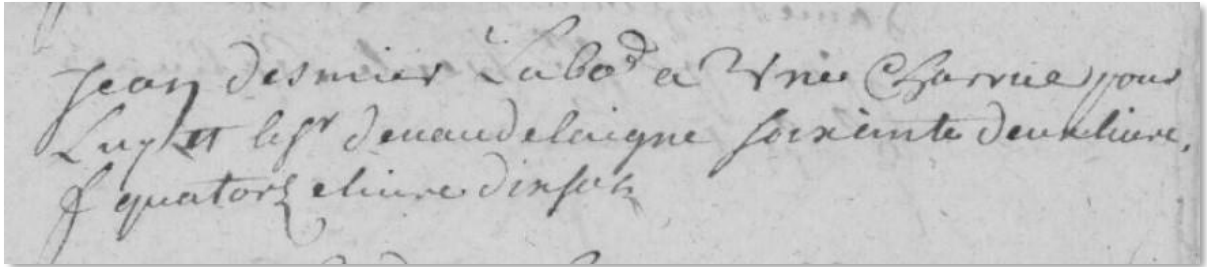 Jean desmier Labo^d a Vne Charrue pour
Luy et le s^r devaudelaigne soixante deux livre,
f quatorze livre dix sols